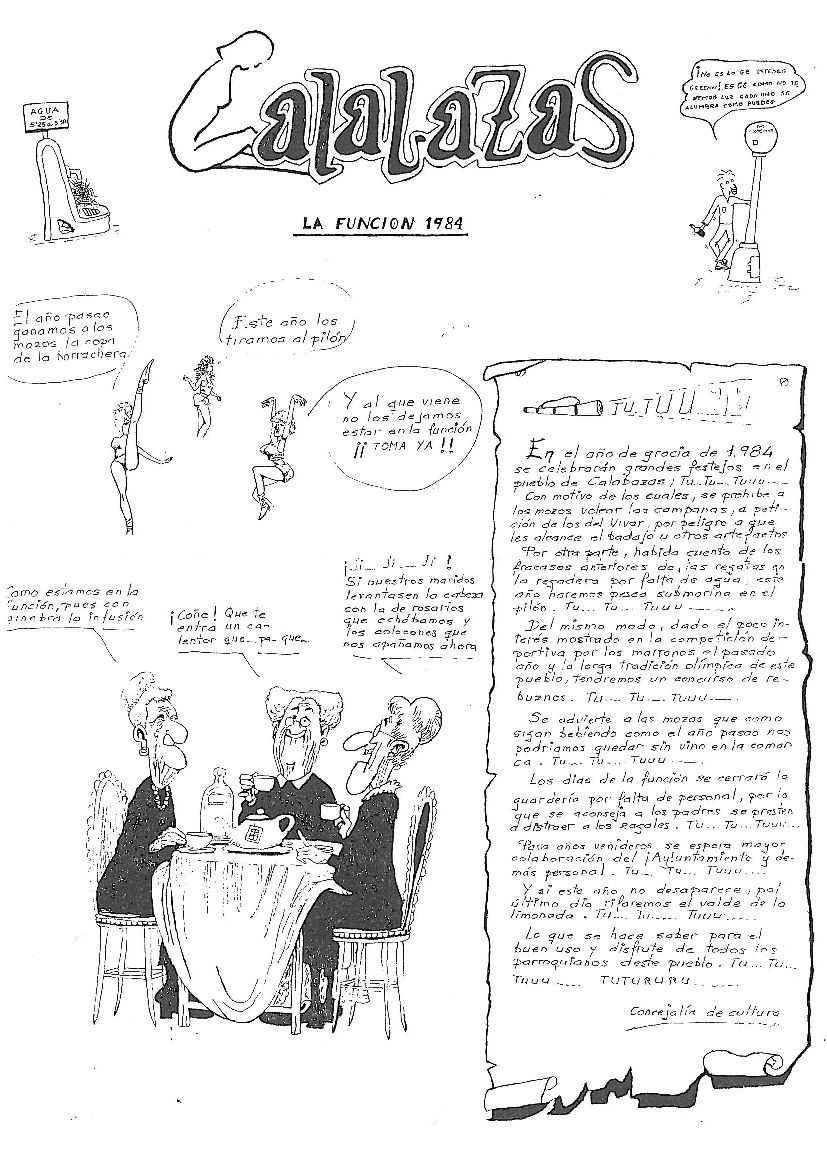 AGUA
DE
5'25 a 5'30
CalabazaS
LA FUNCION 1984
¡NO ES LO QE USTEDES
CREEN!, ES QE COMO NO SE
VEMOS LUZ CADA UNO SE
ALUMBRA COMO PUEDES
El año pasao
ganamos a los
mozos la copa
de la borrachera
Este año los
tiramos al pilón
Y al que viene
no los dejamos
estar en la función
¡¡ TOMA YA !!
Como estamos en la
función, pues con
ginebra la infusión
¡Coñe! Que te
entra un ca-
lentor que... pa- que...
¡Ji... Ji... Ji !
Si nuestros maridos
levantasen la cabeza
con la de rosarios
que echábamos y
los colocones que
nos apañamos ahora
TU, TUU
En el año de gracia de 1.984
se celebrarán grandes festejos en el
pueblo de Calabazas ; Tu... Tu... Tuuu....
Con motivo de los cuales, se prohibe a
los mozos volear las campanas, a peti-
ción de los del Vivar, por peligro a que
les alcance el badajo u otros artefactos
Por otra parte, habida cuenta de los
fracasos anteriores de, las regatas en
la regadera por falta de agua, este
año haremos pesca submarina en el
pilón. Tu... Tu... Tuuu .......
Del mismo modo, dado el poco in-
terés mostrado en la competición de-
portiva por los marranos el pasado
año y la larga tradición olímpica de este
pueblo, tendremos un concurso de re-
buznos. Tu... Tu.... Tuuu.....
Se advierte a las mozas que como
sigan bebiendo como el año pasao nos
podriamos quedar sin vino en la comar
ca. Tu... Tu... Tuuu .....
Los días de la función se cerrará la
guardería por falta de personal, por lo
que se aconseja a los padres se presten
a distraer a los zagales. Tu... Tu... Tuuu...
Para años venideros se espera mayor
colaboración del ¡Ayuntamiento y de-
más personal. Tu... Tu... Tuuu....
Y si este año no desaparece, pal
último día rifaremos el valde de la
limonada. Tu... Tu..... Tuuu......
Lo que se hace saber para el
buen uso y disfrute de todos los
parroquianos deste pueblo. Tu... Tu...
Tuuu ..... TUTURURU.. .....
Concejalía de cultura